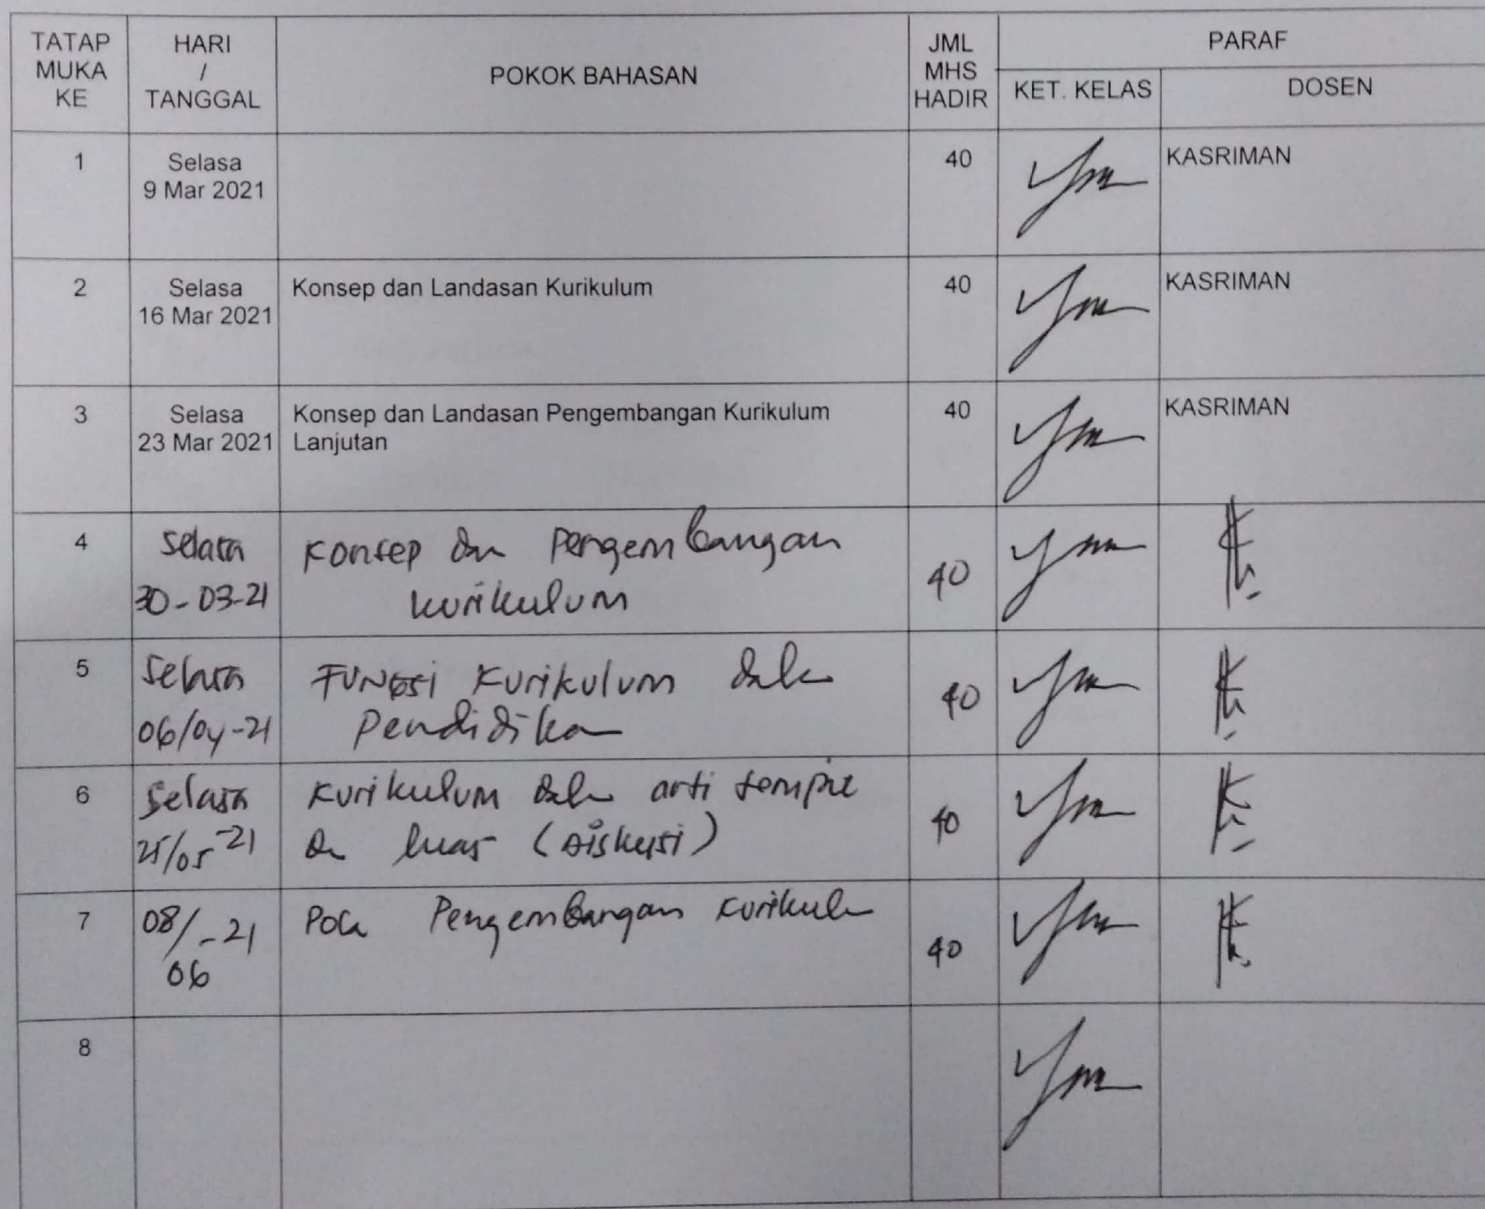 TATAP MUKA KE
HARI / TANGGAL
POKOK BAHASAN
JML MHS HADIR
PARAF
KET. KELAS
DOSEN
1
Selasa
9 Mar 2021
40
KASRIMAN
2
Selasa
16 Mar 2021
Konsep dan Landasan Kurikulum
40
KASRIMAN
3
Selasa
23 Mar 2021
Konsep dan Landasan Pengembangan Kurikulum
Lanjutan
40
KASRIMAN
4
Selasa
30-03-21
Konsep dan Pengembangan
kurikulum
40
5
Selasa
06/04-21
Fungsi Kurikulum dalam
Pendidikan
40
6
Selasa
25/05-21
Kurikulum dalam arti sempit
dan luas (Diskusi)
40
7
08/-21
06
Pola Pengembangan Kurikulum
40
8